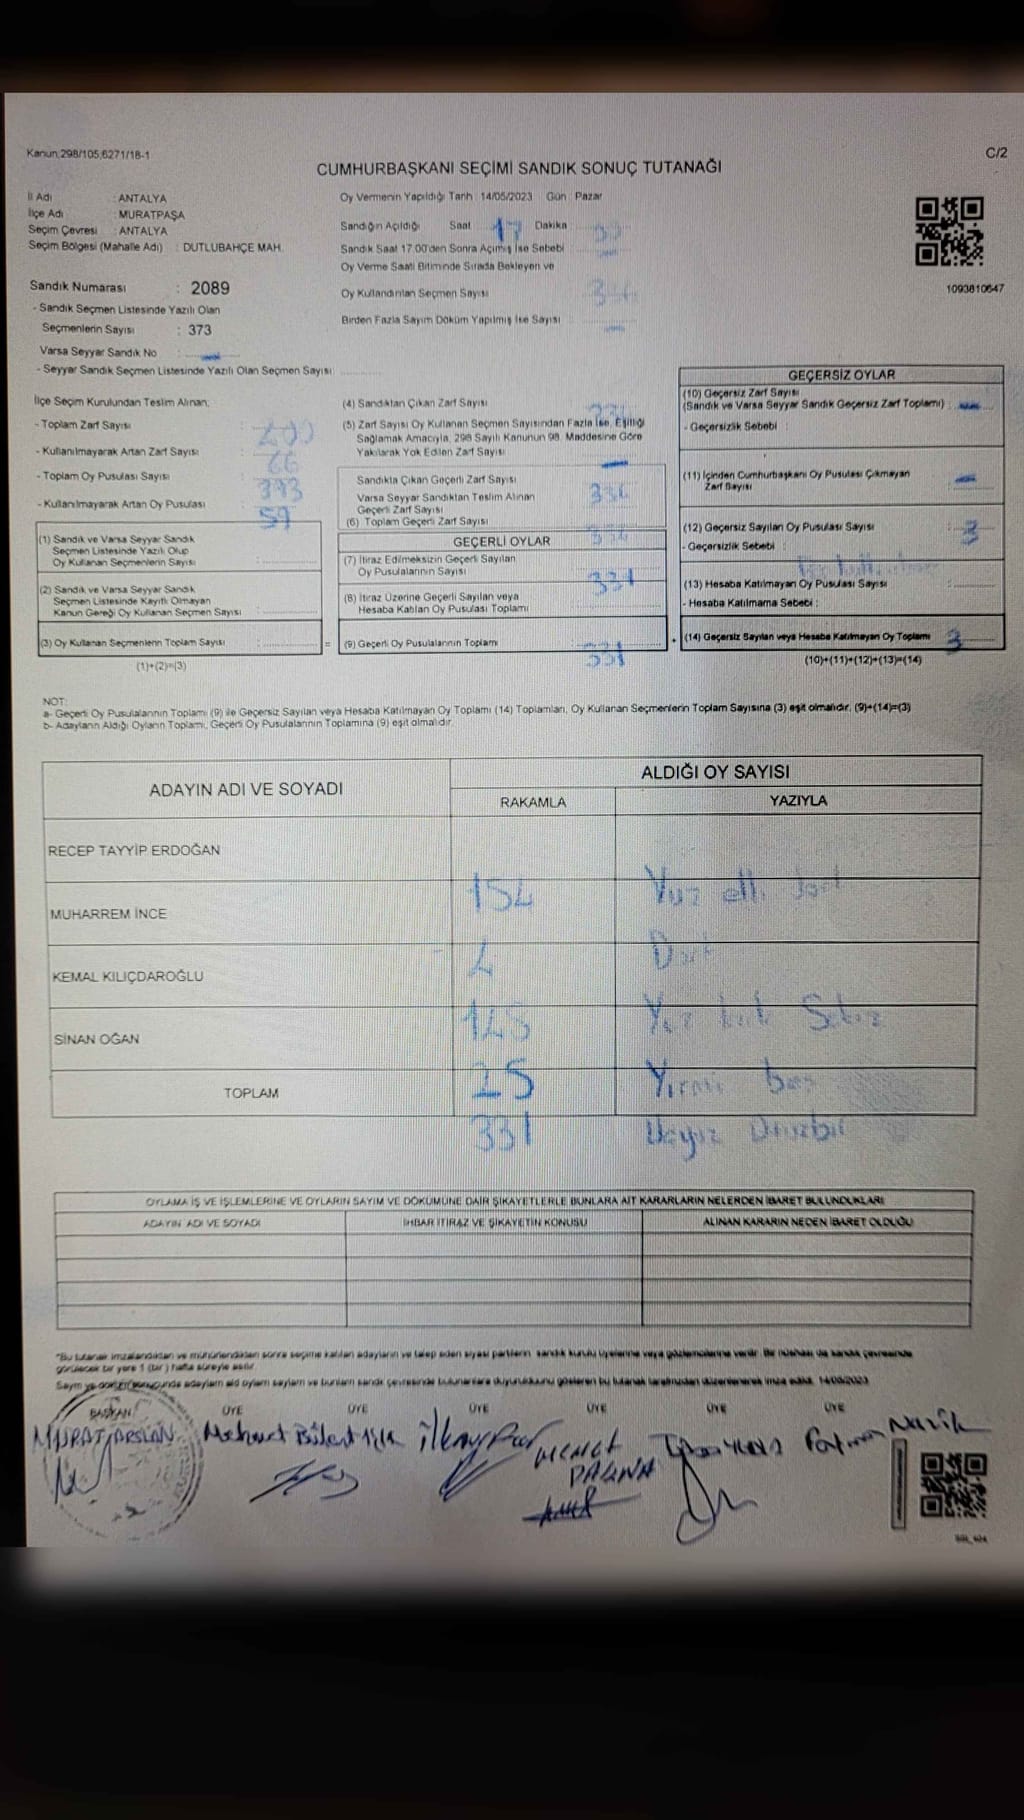 Kanun;298/105,6271/18-1
C/2
CUMHURBAŞKANI SEÇİMİ SANDIK SONUÇ TUTANAĞI
İl Adı : ANTALYA
İlçe Adı : MURATPAŞA
Seçim Çevresi : ANTALYA
Seçim Bölgesi (Mahalle Adı) : DUTLUBAHÇE MAH.
Sandık Numarası : 2089
- Sandık Seçmen Listesinde Yazılı Olan
Seçmenlerin Sayısı : 373
Varsa Seyyar Sandık No :
- Seyyar Sandık Seçmen Listesinde Yazılı Olan Seçmen Sayısı :
Oy Vermenin Yapıldığı Tarih : 14/05/2023 Gün : Pazar
Sandığın Açıldığı Saat 17 Dakika
Sandık Saat 17.00'den Sonra Açımış İse Sebebi
Oy Verme Saati Bitiminde Sırada Bekleyen ve
Oy Kullandırılan Seçmen Sayısı
Birden Fazla Sayım Döküm Yapılmış İse Sayısı
1093810647
İlçe Seçim Kurulundan Teslim Alınan:
- Toplam Zarf Sayısı :
- Kullanılmayarak Artan Zarf Sayısı : 66
- Toplam Oy Pusulası Sayısı : 393
- Kullanılmayarak Artan Oy Pusulası : 59
(1) Sandık ve Varsa Seyyar Sandık
Seçmen Listesinde Yazılı Olup
Oy Kullanan Seçmenlerin Sayısı :
(2) Sandık ve Varsa Seyyar Sandık
Seçmen Listesinde Kayıtlı Olmayan
Kanun Gereği Oy Kullanan Seçmen Sayısı :
(3) Oy Kullanan Seçmenlerin Toplam Sayısı : =
(1)+(2)=(3)
(4) Sandıktan Çıkan Zarf Sayısı 334
(5) Zarf Sayısı Oy Kullanan Seçmen Sayısından Fazla İse, Eşitliği
Sağlamak Amacıyla, 298 Sayılı Kanunun 98. Maddesine Göre
Yakılarak Yok Edilen Zarf Sayısı
Sandıkta Çıkan Geçerli Zarf Sayısı 334
Varsa Seyyar Sandıktan Teslim Alınan
Geçerli Zarf Sayısı
(6) Toplam Geçerli Zarf Sayısı 334
GEÇERLİ OYLAR
(7) İtiraz Edilmeksizin Geçerli Sayılan
Oy Pusulalarının Sayısı 331
(8) İtiraz Üzerine Geçerli Sayılan veya
Hesaba Katılan Oy Pusulası Toplamı
(9) Geçerli Oy Pusulalarının Toplamı 331 +
GEÇERSİZ OYLAR
(10) Geçersiz Zarf Sayısı
(Sandık ve Varsa Seyyar Sandık Geçersiz Zarf Toplamı) :
- Geçersizlik Sebebi :
(11) İçinden Cumhurbaşkanı Oy Pusulası Çıkmayan
Zarf Sayısı
(12) Geçersiz Sayılan Oy Pusulası Sayısı : 3
- Geçersizlik Sebebi :
(13) Hesaba Katılmayan Oy Pusulası Sayısı :
- Hesaba Katılmama Sebebi :
(14) Geçersiz Sayılan veya Hesaba Katılmayan Oy Toplamı : 3
(10)+(11)+(12)+(13)=(14)
NOT:
a- Geçerli Oy Pusulalarının Toplamı (9) ile Geçersiz Sayılan veya Hesaba Katılmayan Oy Toplamı (14) Toplamları, Oy Kullanan Seçmenlerin Toplam Sayısına (3) eşit olmalıdır. (9)+(14)=(3)
b- Adayların Aldığı Oyların Toplamı, Geçerli Oy Pusulalarının Toplamına (9) eşit olmalıdır.
ADAYIN ADI VE SOYADI
ALDIĞI OY SAYISI
RAKAMLA YAZIYLA
RECEP TAYYİP ERDOĞAN
154 Yüz elli dört
MUHARREM İNCE
4 Dört
KEMAL KILIÇDAROĞLU
148 Yüz kırk Sekiz
SİNAN OĞAN
25 Yirmi beş
TOPLAM
331 Üçyüz Otuzbir
OYLAMA İŞ VE İŞLEMLERİNE VE OYLARIN SAYIM VE DÖKÜMÜNE DAİR ŞİKAYETLERLE BUNLARA AİT KARARLARIN NELERDEN İBARET BULUNDUKLARI
ADAYIN ADI VE SOYADI İHBAR İTİRAZ VE ŞİKAYETİN KONUSU ALINAN KARARIN NEDEN İBARET OLDUĞU
"Bu tutanak imzalandıktan ve mühürlendikten sonra seçime katılan adayların ve talep eden siyasi partilerin sandık kurulu üyelerine veya gözlemcilerine verilir. Bir nüshası da sandık çevresinde
görülecek bir yere 1 (bir) hafta süreyle asılır.
14/05/2023
BAŞKAN ÜYE ÜYE ÜYE ÜYE ÜYE ÜYE
MURAT ARSLAN Mehmet Bülent İlkay Fatma Nazik